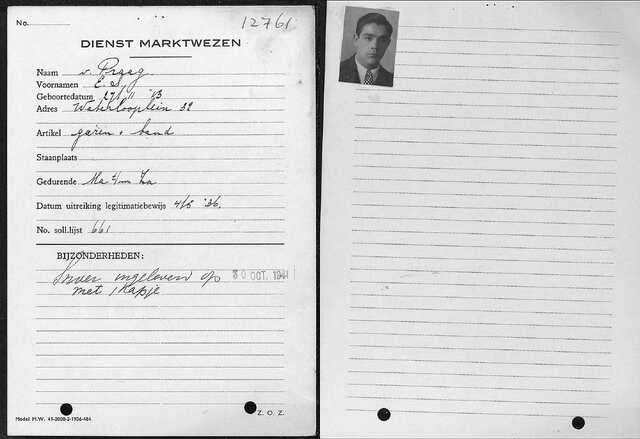 No. 12761
DIENST MARKTWEZEN
Naam v. Praag.
Voornamen E.
Geboortedatum 27/11 '13
Adres Waterlooplein 32
Artikel garen + band
Staanplaats
Gedurende Ma t/m Za
Datum uitreiking legitimatiebewijs 4/5 '36.
No. soll.lijst 661
BIJZONDERHEDEN:
ingeleverd op 30 OCT. 1941
met 1 kapje
Model M.W. 49-2000-2-1936-484
Z. O. Z.